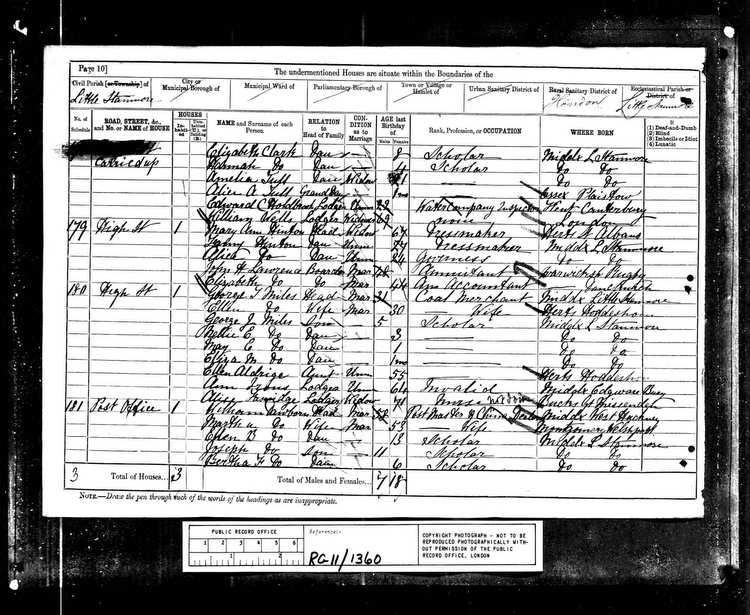 Page 10]
The undermentioned Houses are situate within the Boundaries of the
Civil Parish [or Township] of
City or Municipal Borough of
Municipal Ward of
Parliamentary Borough of
Town or Village or Hamlet of
Urban Sanitary District of
Rural Sanitary District of
Ecclesiastical Parish or District of
Little Stanmore Hendon
No. of Schedule
ROAD, STREET, &c., and No. or NAME of HOUSE
HOUSES
NAME and Surname of each Person
RELATION to Head of Family
CONDITION as to Marriage
AGE last Birthday of
Males Females
Rank, Profession, or OCCUPATION
WHERE BORN
If
(1) Deaf-and-Dumb
(2) Blind
(3) Imbecile or Idiot
(4) Lunatic
Elizabeth Clark Dau 8 Scholar Middlx L Stanmore
Carried up Hannah Do Dau 4 Scholar Do Do
Amelia Tull Dau Widow Do Do
Alice A Tull Grand Dau 1mo Essex Plaistow
Edward C Lodger Unm Water Company Inspector Kent Canterbury
William Wells Lodger Widower 69 London
179 High St 1 Mary Ann Hinton Head Widow 67 Dressmaker Herts St Albans
Fanny Hinton Dau Unm Dressmaker Middx L Stanmore
Alice Do Dau Unm 24 Governess Do Do
John H Lawrence Boarder Mar Warwicksh Rugby
Elizabeth Do Do Mar 44
180 High St 1 George T Miles Head Mar 31 Coal Merchant Middx Little Stanmore
Ellen Do Wife Mar 30 Wife Herts Hoddesdon
George J Miles Son 5 Scholar Middlx L Stanmore
Do Dau 3 Do Do
May E Do Dau 1 Do Do
Eliza M Do Dau 1mo Do Do
Ellen Aldrige Aunt Unm 55 Herts Hoddesdon
Ann Lodger Unm 64 Invalid Middlx Edgware
Lodger Widow 71 Nurse Bucks Gt Missenden
181 Post Office 1 William Head Mar 52 Post Master & China Middlx West Hackney
Martha Do Wife Mar 53 Wife Montgomery
Ellen B Do Dau 13 Scholar Middlx L Stanmore
Joseph Do Son 11 Scholar Do Do
Bertha H Do Dau 6 Scholar Do Do
3 Total of Houses... 3 Total of Males and Females... 7 18
NOTE.—Draw the pen through such of the words of the headings as are inappropriate.
PUBLIC RECORD OFFICE
1 2 3 4 5 6
1 2
Reference:-
RG 11/1360
COPYRIGHT PHOTOGRAPH - NOT TO BE
REPRODUCED PHOTOGRAPHICALLY WITH-
OUT PERMISSION OF THE PUBLIC
RECORD OFFICE, LONDON